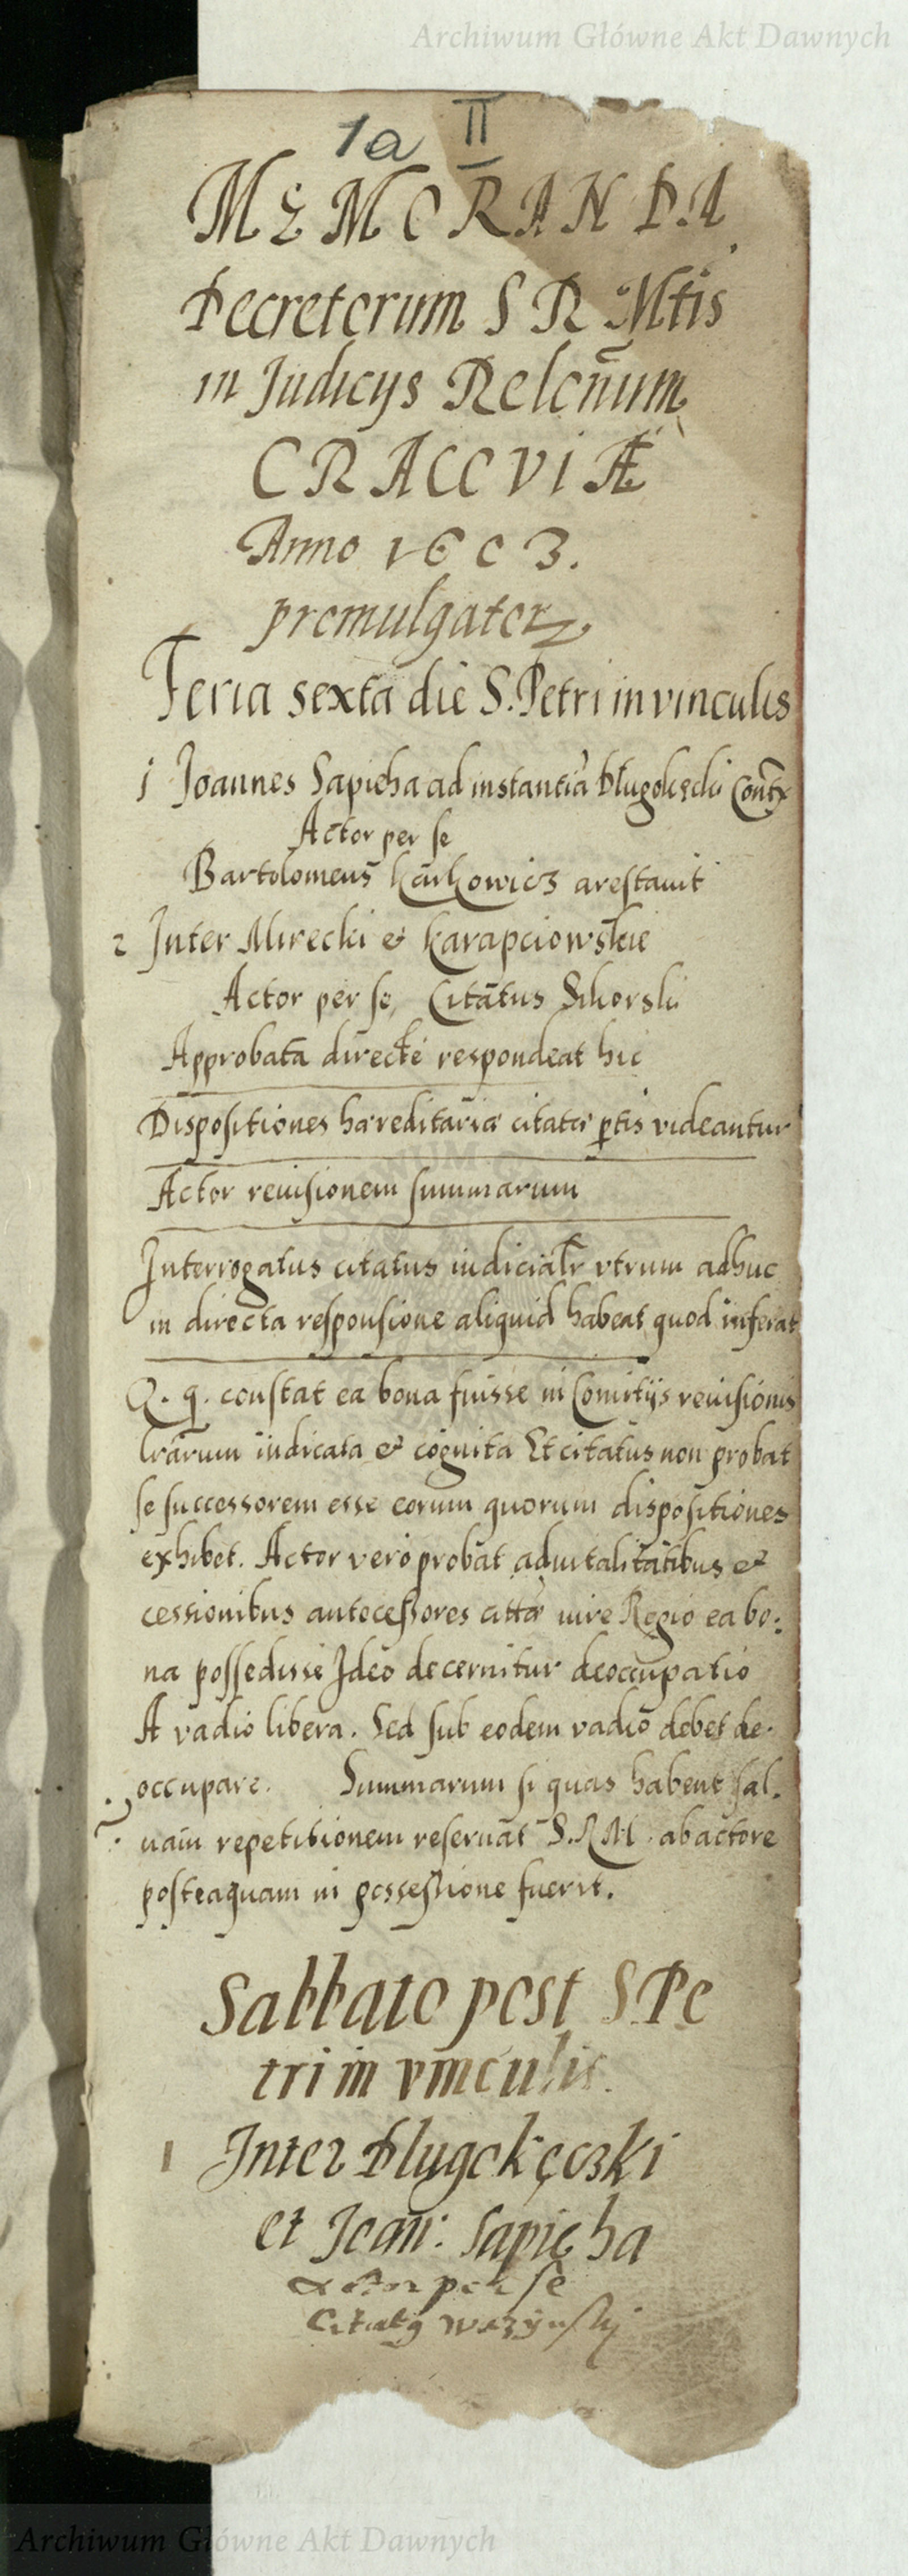 Archiwum Główne Akt Dawnych
1a II
MEMORANDA
Decretorum S R Mtis
in Judicys Relonum
CRACOVIÆ
Anno 1603.
promulgator
Feria sexta die S. Petri in vinculis
1 Joannes Sapieha ad instantiā Długokęcki Contx
Actor per se
Bartolomeus arestavit
2 Inter Mirecki et Karapciowskie
Actor per se, Citatus Sikorski
Approbata directe respondeat hic
Dispositiones hæreditariæ citatæ ptis videantur
Actor revisionem summarum
Interrogatus citatus iudicialr vtrum adhuc
in directa responsione aliquid habeat quod inferat
Q. q. constat ea bona fuisse in Comitijs revisionis
lrarum iudicata et cognita Et citatus non probat
se successorem esse eorum quorum dispositiones
exhibet. Actor vero probat advitalitatibus et
cessionibus antocessores iure Regio ea bo:
na possedisse Ideo decernitur deoccupatio
A vadio libera. Sed sub eodem vadio debet de.
occupare. Summarum si quas habent sal.
uam repetitionem reseruat S.R M. ab actore
posteaquam in possessione fuerit.
Sabbato post S. Pe
tri in vinculis.
1 Inter Dlugokęczki
et Joan: Sapieha
Actor per se
Citatq
Archiwum Główne Akt Dawnych